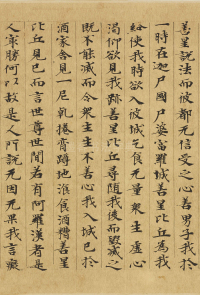 善星說法而彼都无信受之心善男子我於
一時在迦尸國尸婆富羅城善星比丘為我
給使我時欲入彼城乞食无量眾生虛心
渴仰欲見我跡善星比丘尋隨我後而毀滅之
既不能滅而令眾生生不善心我入城已於
酒家舍見一尼乾捲脊蹲地飡食酒糟善星
比丘見已而言世尊世間若有阿羅漢者是
人寂勝何以故是人所說无因无果我言癡